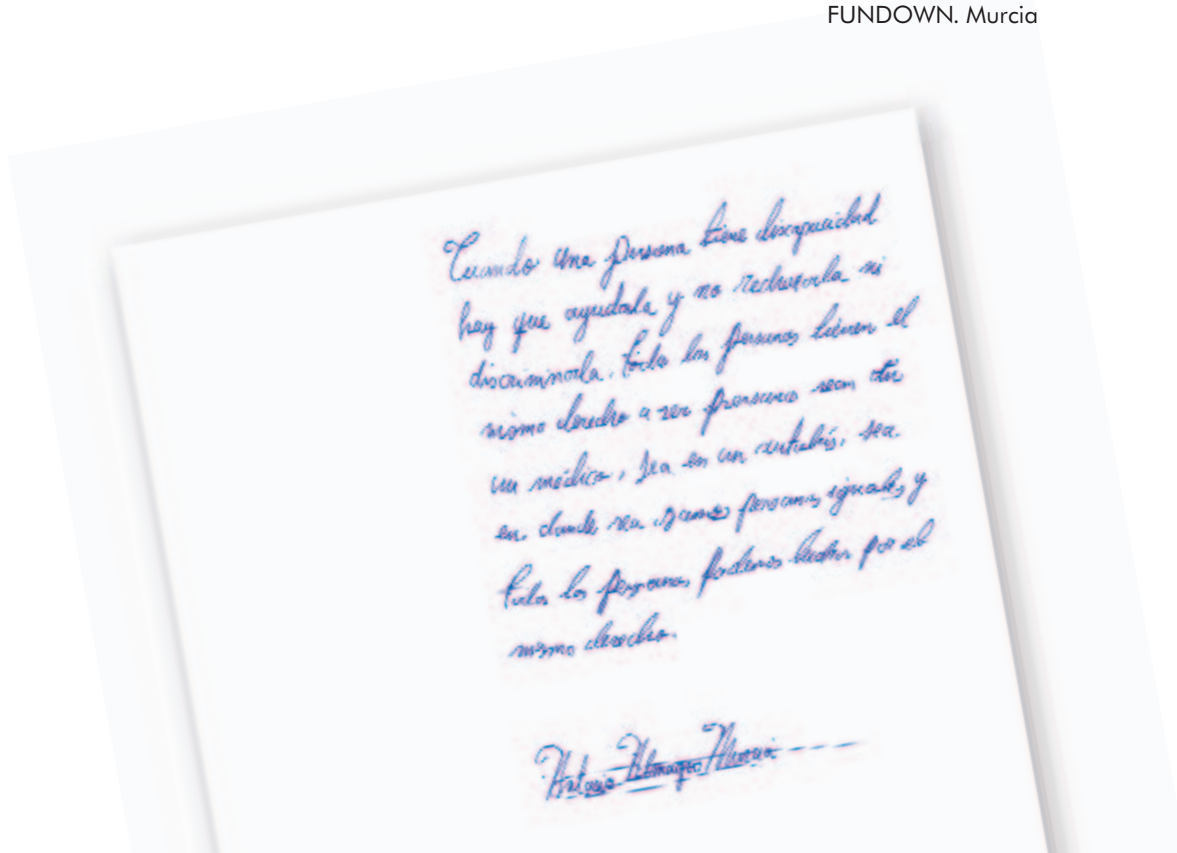 FUNDOWN. Murcia
Cuando una persona tiene discapacidad
hay que ayudarla y no rechazarla ni
discriminarla. todas las personas tienen el
mismo derecho a ser personas sean
un médico, sea en un autobús, sea
en donde sea seamos personas iguales y
todas las personas podemos luchar por el
mismo derecho.
Antonio Almagro